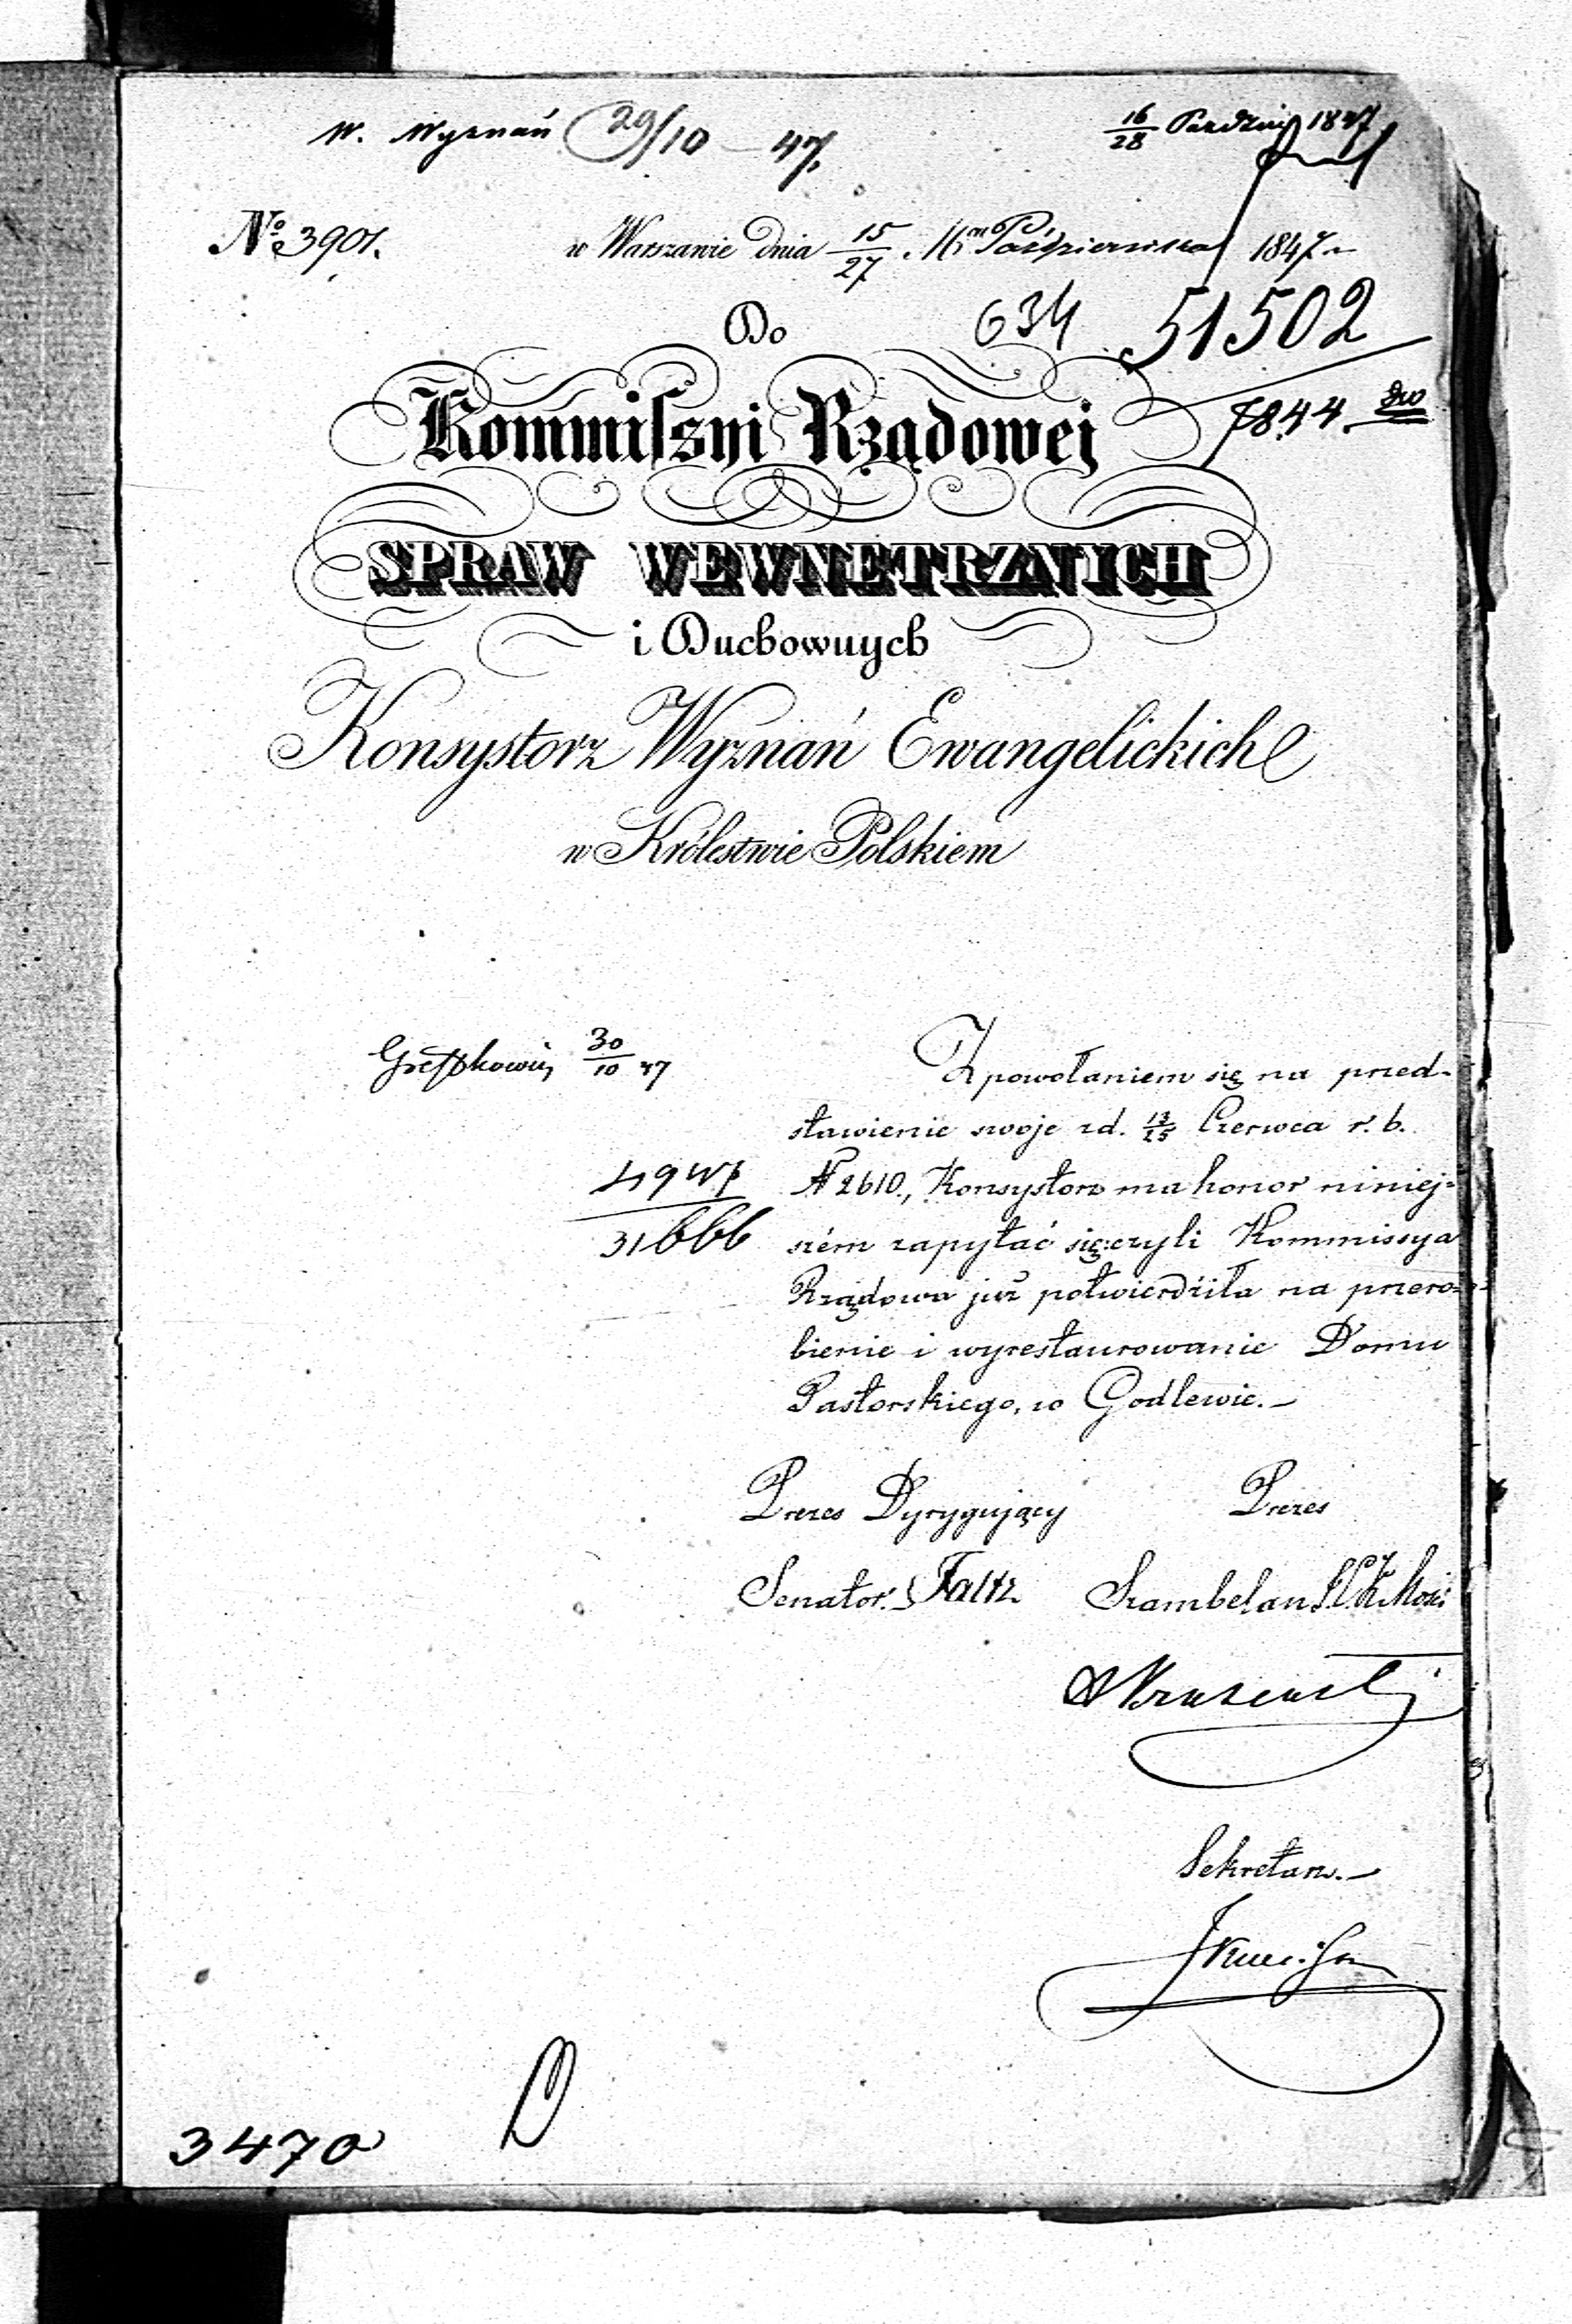 W. Wyznań 29/10 – 47.
16/28 Paździer 1847
No 3901.
w Warszawie dnia 15/27 Mca Października 1847 r.
Do
634 51502
7844
Kommifsyi Rządowej
SPRAW WEWNĘTRZNYCH
i Duchownych
Konsystorz Wyznań Ewangelickich
w Królestwie Polskiem
30/10 47
Z powołaniem się na przed-
stawienie swoje z d. 13/25 Czerwca r. b.
4947
N 2610., Konsystorz ma honor niniej-
31666
szém zapytać się: czyli Kommissya
Rządowa już potwierdziła na przero-
bienie i wyrestaurowanie Domu
Pastorskiego, w Godlewie. –
Prezes Dyrygujący Prezes
Senator. Szambelan
Sekretarz. –
3470